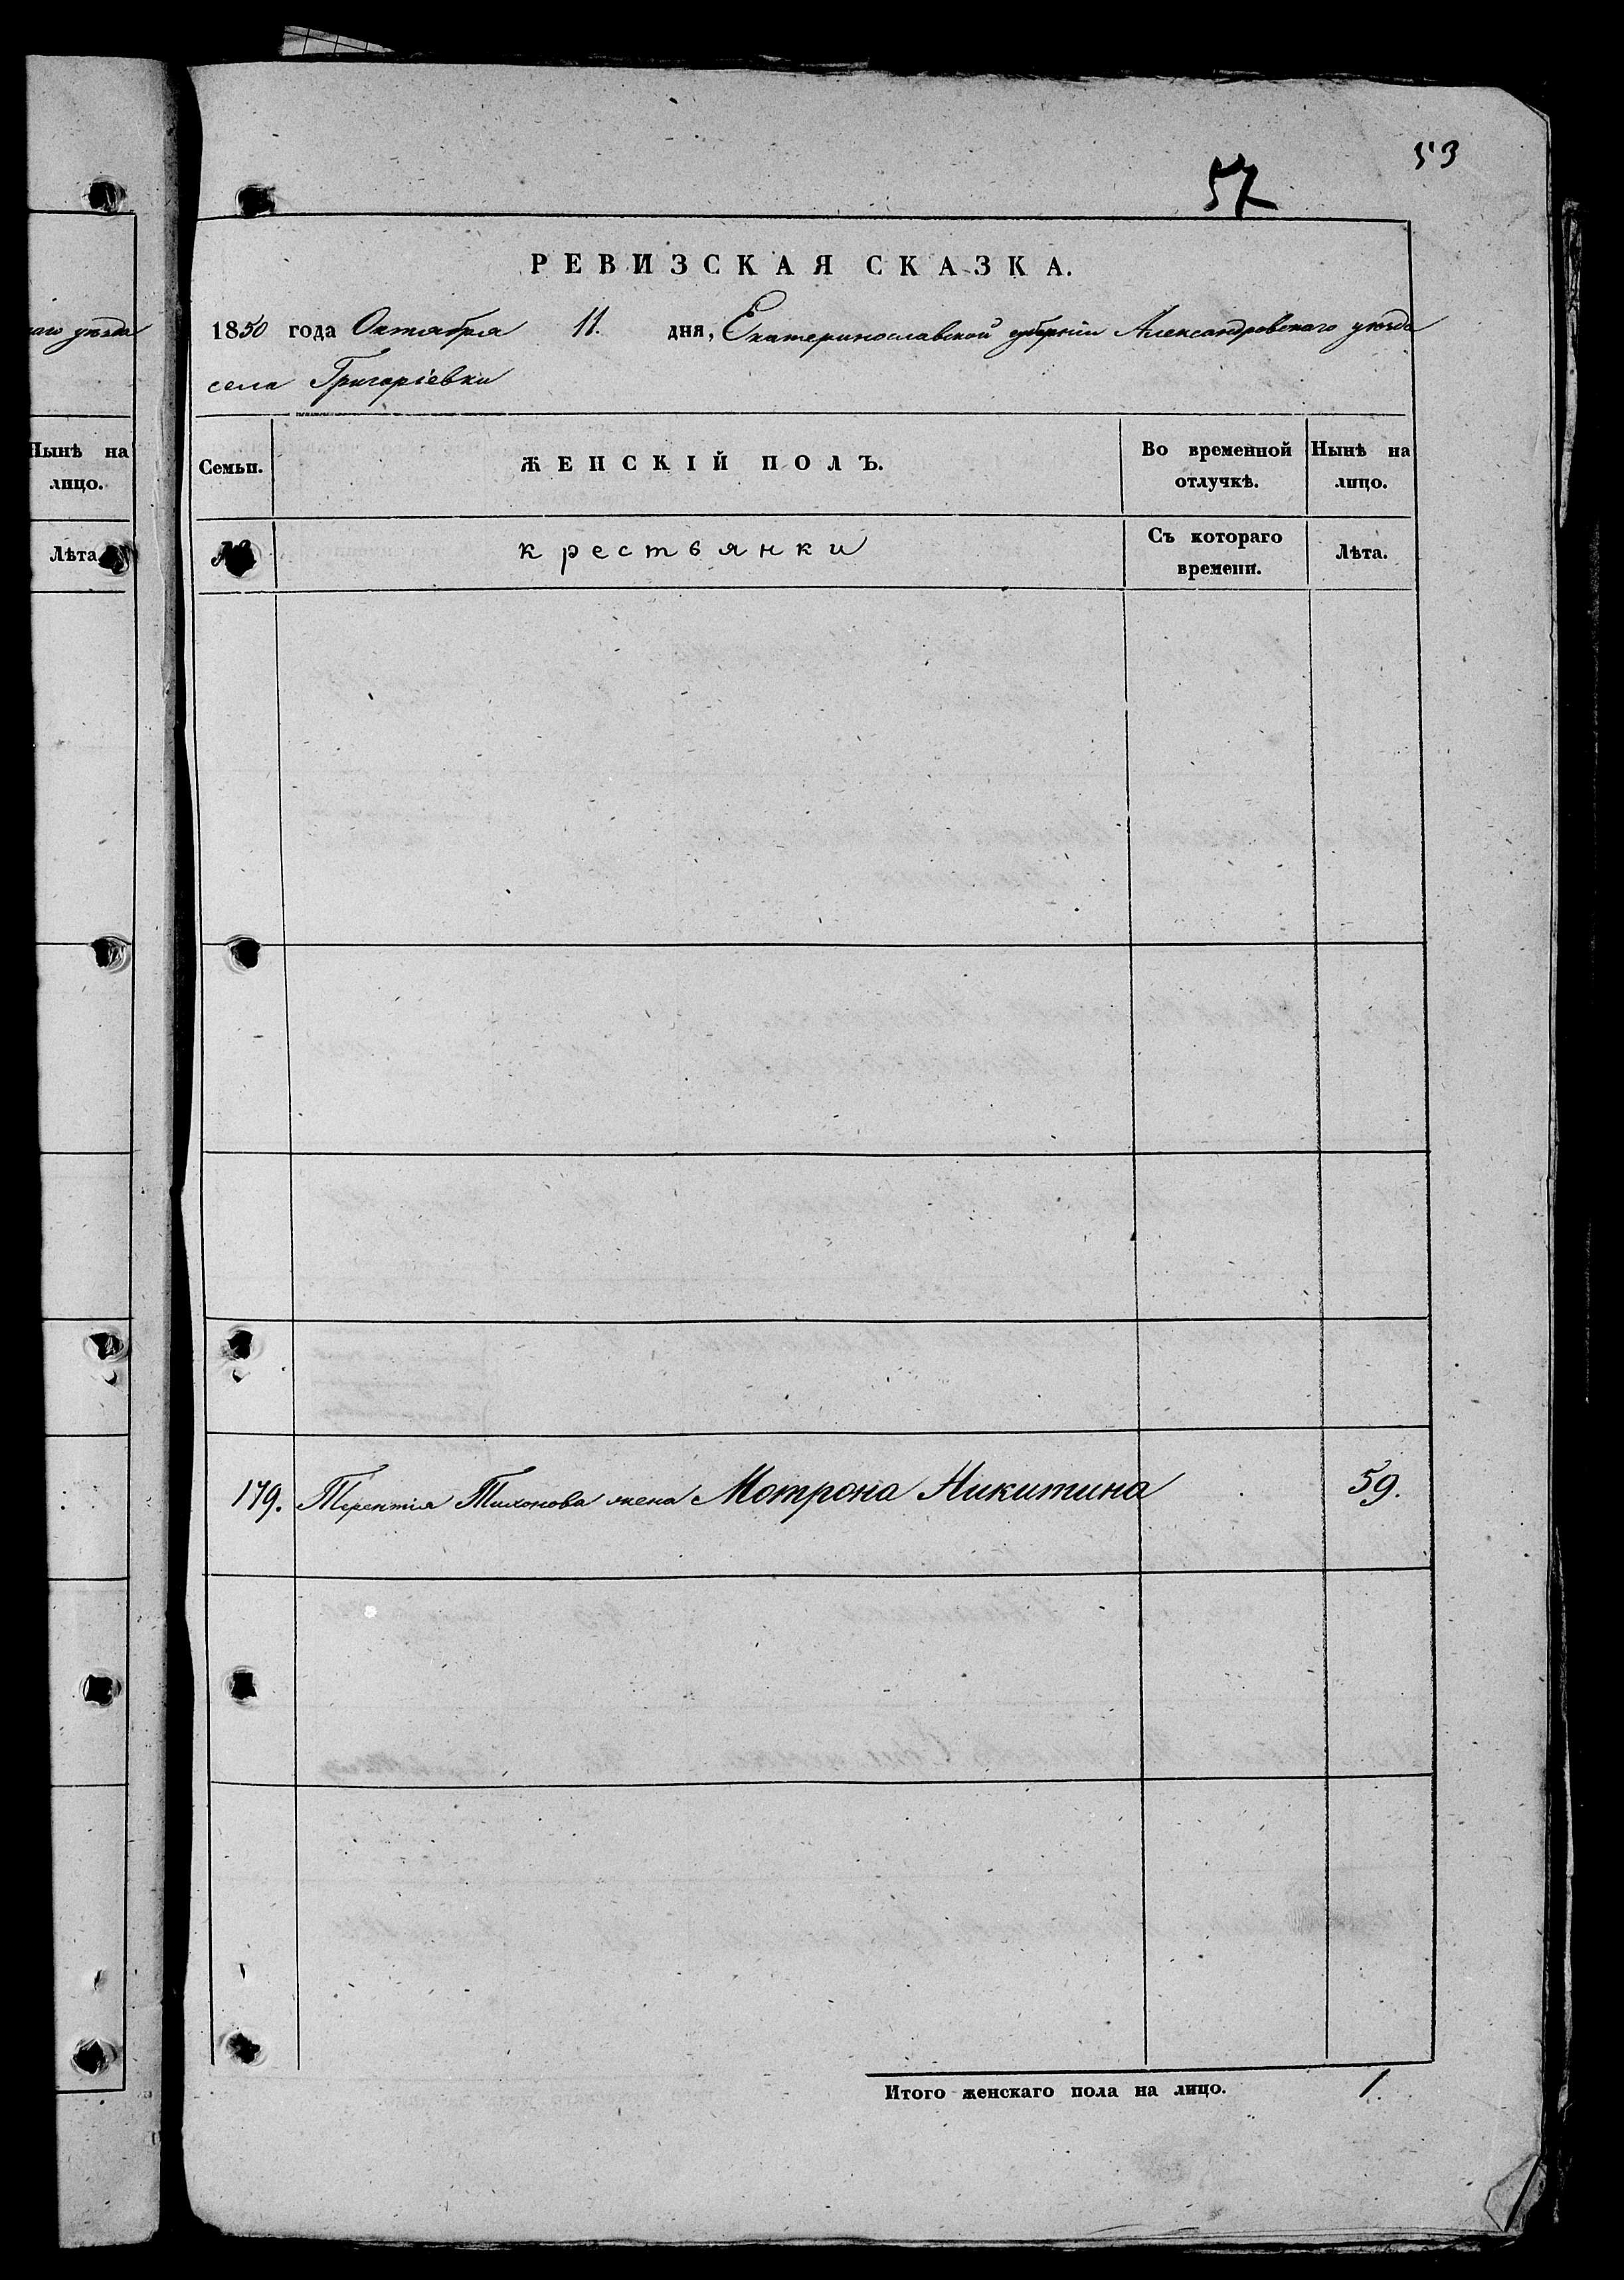 53
57
РЕВИЗСКАЯ СКАЗКА.
1850 года Октября 11. дня, Екатеринославской губерніи Александровскаго уѣзда
села Григоріевки
Семьи.
ЖЕНСКІЙ ПОЛЪ.
Во временной отлучкѣ.
Нынѣ на лицо.
№
крестьянки
Съ котораго времени.
Лѣта.
179. Терентія Тихонова жена Мотрона Никитина 59.
Итого женскаго пола на лицо. 1.
уѣзда
Нынѣ на
лицо.
Лѣта